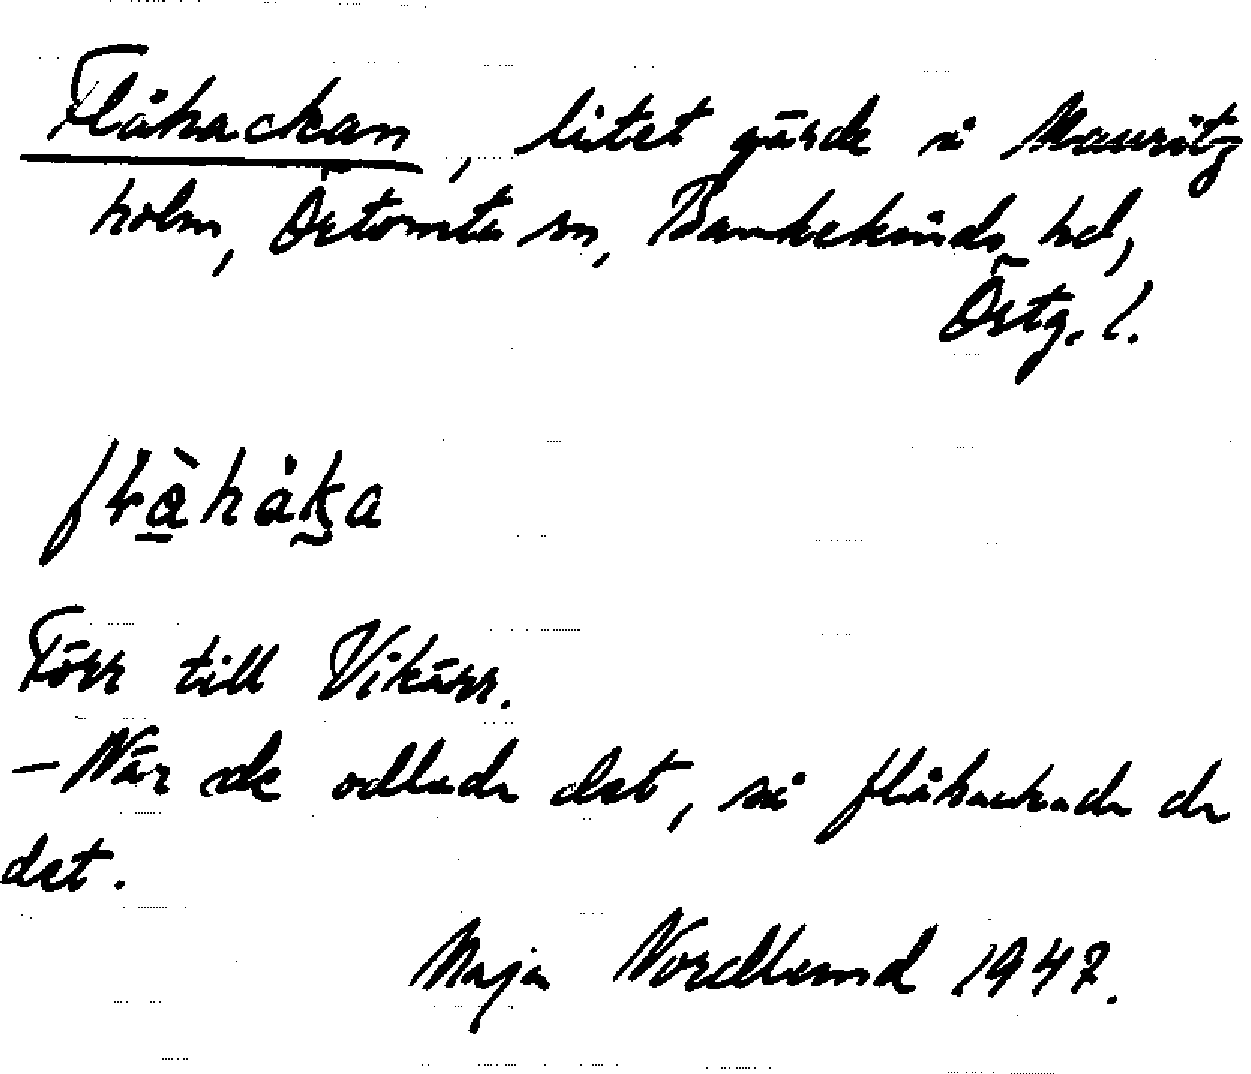 Flåhackan, litet gärde i Mauritz
holm, Östomta sn, Bankekinds hd,
Östg. l.
Förr till Vikärr.
– När de odlade det, så flåhackade de
det.
Maja Nordlund 1947.